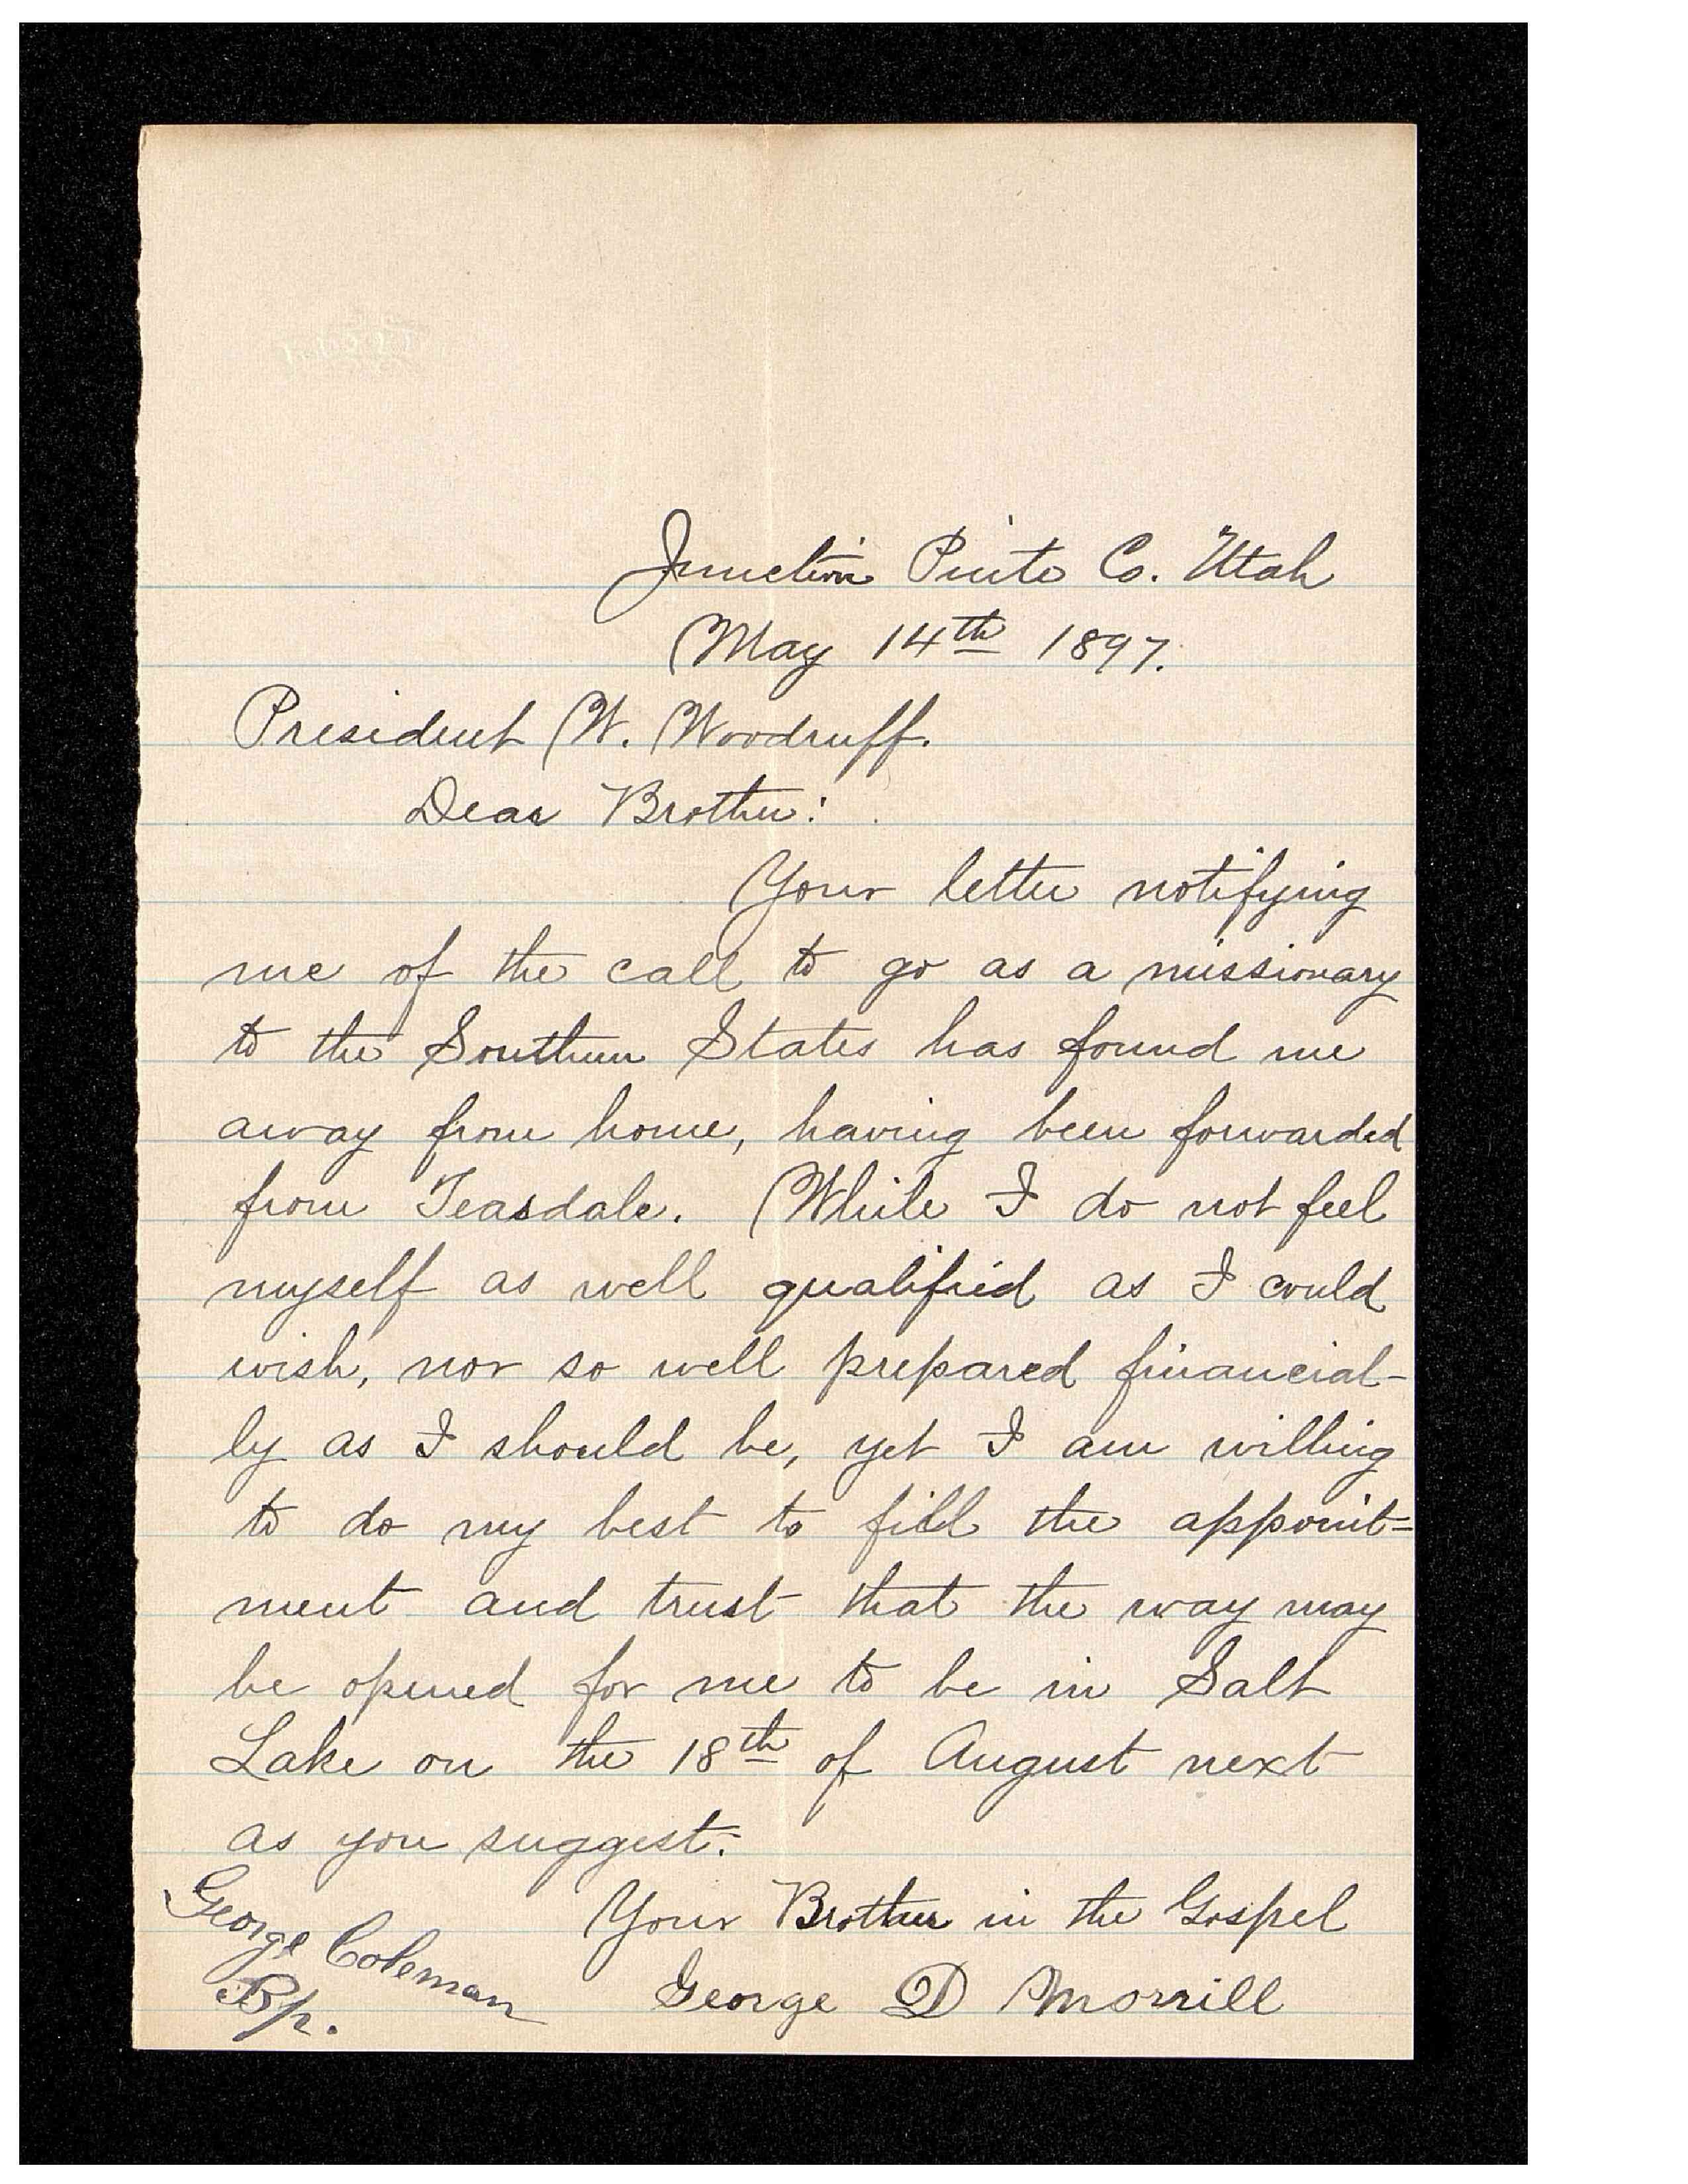 Junction Piute Co. Utah
May 14th 1897.
President W. Woodruff.
Dear Brother:
Your letter notifying
me of the call to go as a missionary
to the Southern States has found me
away from home, having been forwarded
from Teasdale. While I do not feel
myself as well qualified as I could
wish, nor so well prepared financial-
ly as I should be, yet I am willing
to do my best to fill the appoint=
ment and trust that the way may
be opened for me to be in Salt
Lake on the 18th of August next
as you suggest.
Your Brother in the Gospel
George D Morrill
George Coleman
Bp.